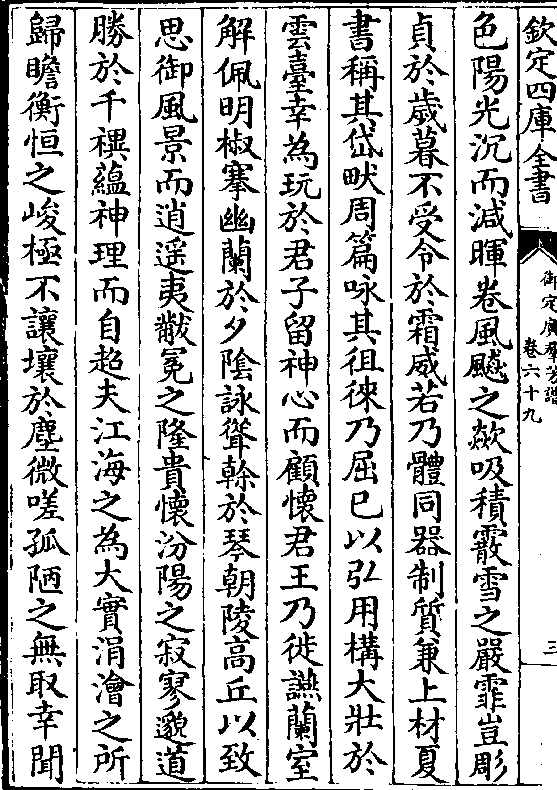 欽定四庫全書
御定廣羣芳譜
卷六十九
三
色陽光沉而減暉卷風飈之欻吸積霰雪之嚴霏豈彫
貞於歲暮不受令於霜威若乃體同器制質兼上材夏
書稱其岱畎周篇咏其徂徠乃屈巳以弘用構大壯於
雲臺幸為玩於君子留神心而顧懷君王乃徙讌蘭室
解佩明椒搴幽蘭於夕陰詠聳榦於琴朝陵高丘以致
思御風景而逍遥夷黻冕之隆貴懷汾陽之寂寥邈道
勝於千禩蘊神理而自超夫江海之為大實涓澮之所
歸瞻衡恒之峻極不讓壤於塵微嗟孤陋之無取幸聞